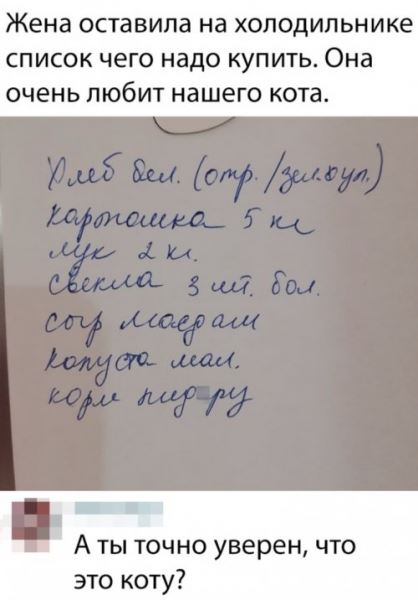 Жена оставила на холодильнике
список чего надо купить. Она
очень любит нашего кота.
Хлеб бел. (отр./зел.бул.)
картошка 5 кг
лук 2 кг.
свекла 3 шт. бол.
сыр маасдам
капуста мал.
корм
А ты точно уверен, что
это коту?